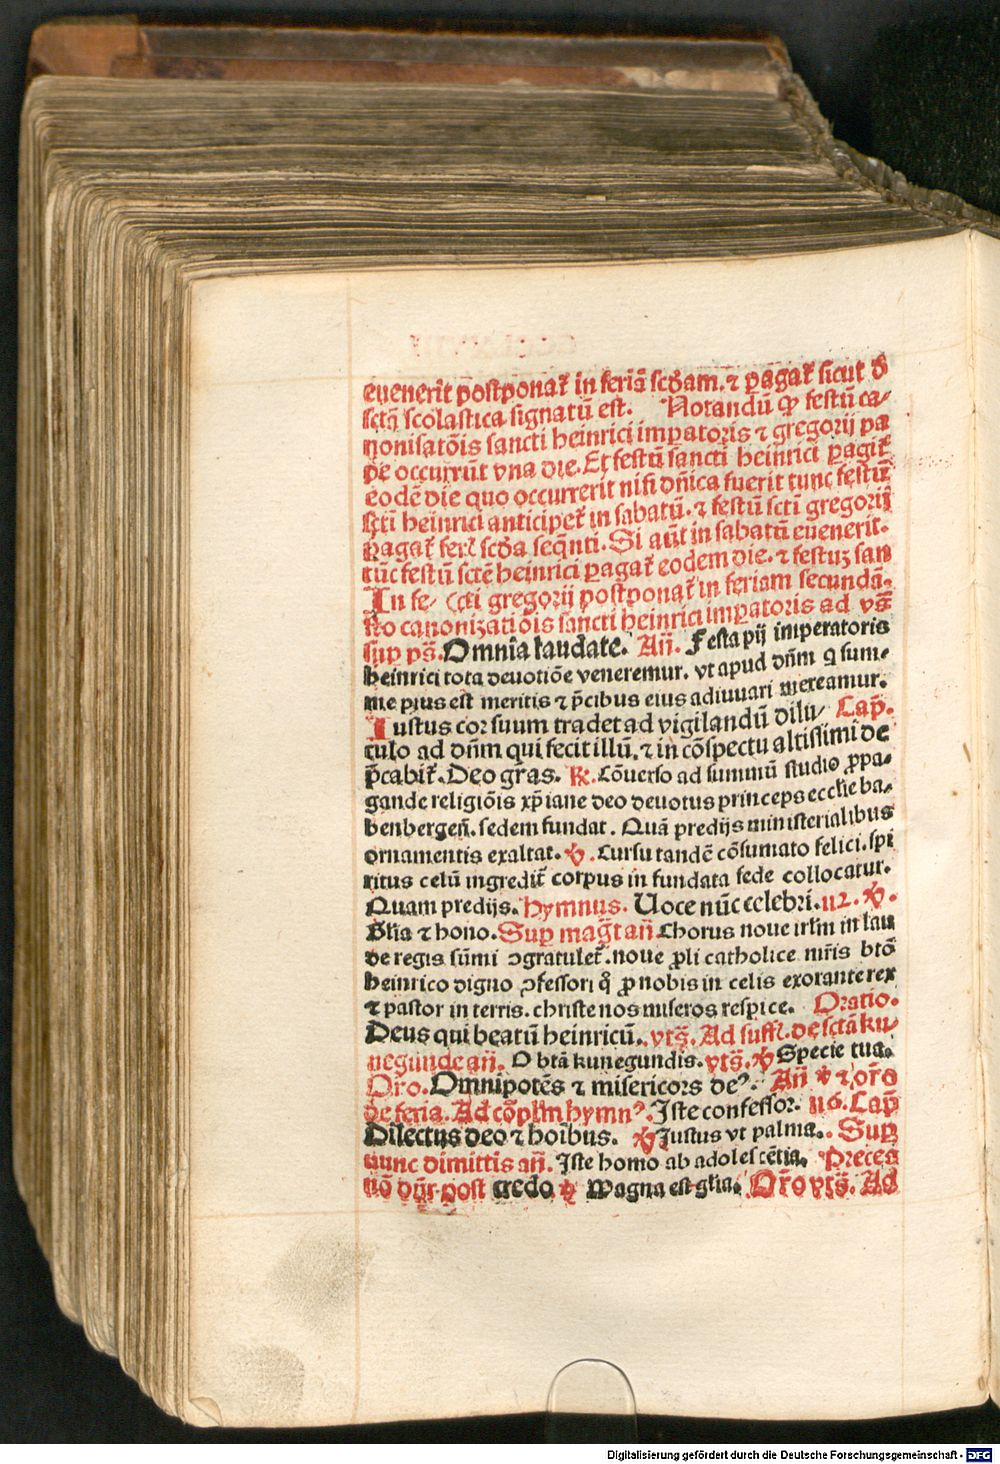 euenerit postponat᷑ in feriā scd̄am. ⁊ ꝑagat᷑ sicut d̄
sctā scolastica signatū est. Notandū ꝙ festū ca⸗
nonisatōis sancti heinrici imꝑatoris ⁊ gregorij pa
pe occurrūt vna die. Et festū sancti heinrici ꝑagit᷑
eodē die quo occurrerit nisi dn̄ica fuerit tunc festū
scti heinrici anticipet᷑ in sabatū. ⁊ festū scti gregorij
ꝑagat᷑ feri scd̄a seqn̄ti. Si aūt in sabatū euenerit.
tūc festū scti heinrici ꝑagat᷑ eodem die. ⁊ festuz san
In fe⸗ cti gregorij postponat᷑ in feriam secundā.
sto canonizatiōis sancti heinrici imꝑatoris ad vs̄
suꝑ ps̄. Omnia laudate. Añ. Festa pij imperatoris
heinrici tota deuotiōe veneremur. vt apud dn̄m q sum⸗
me pius est meritis ⁊ p̄cibus eius adiuuari mereamur.
Iustus cor suum tradet ad vigilandū dilu⸗ Cap̄.
culo ad dn̄m qui fecit illū. ⁊ in cōspectu altissimi de
p̄cabit᷑. Deo gr̄as. ℟. Cōuerso ad summū studio ꝓpa⸗
gande religiōis xp̄iane deo deuotus princeps ecclīe ba⸗
benbergeñ. sedem fundat. Quā predijs ministerialibus
ornamentis exaltat. ℣. Cursu tandē cōsumato felici. spi
ritus celū ingredit᷑ corpus in fundata sede collocatur.
Quam predijs. hymnus. Uoce nūc celebri. 112. ℣.
Gl̄ia ⁊ hono. Suꝑ mag̅t añ Chorus noue irl̄m in lau
de regis sūmi ↄgratulet᷑. noue ꝓli catholice mr̄is btō
heinrico digno ↄfessori q̊ ꝓ nobis in celis exorante rex
⁊ pastor in terris. christe nos miseros respice. Oratio.
Deus qui beatū heinricū. vts̄. Ad suffr̄. de sctā ku⸗
negunde añ. O btā kunegundis. vts̄. ℣ Specie tua.
Oro. Omnipotēs ⁊ misericors deꝰ. Añ ℣ ⁊ or̄o
de feria. Ad cōpl̄m hymnꝰ. Iste confessor. 116. Cap̄
Dilectus deo ⁊ hoībus. ℣ Iustus vt palma. Suꝑ
nunc dimittis añ. Iste homo ab adolescētia. Preces
nō dn̄r post credo ℣ Magna est gl̄ia. Or̄o vts̄. Ad
Digitalisierung gefördert durch die Deutsche Forschungsgemeinschaft - DFG